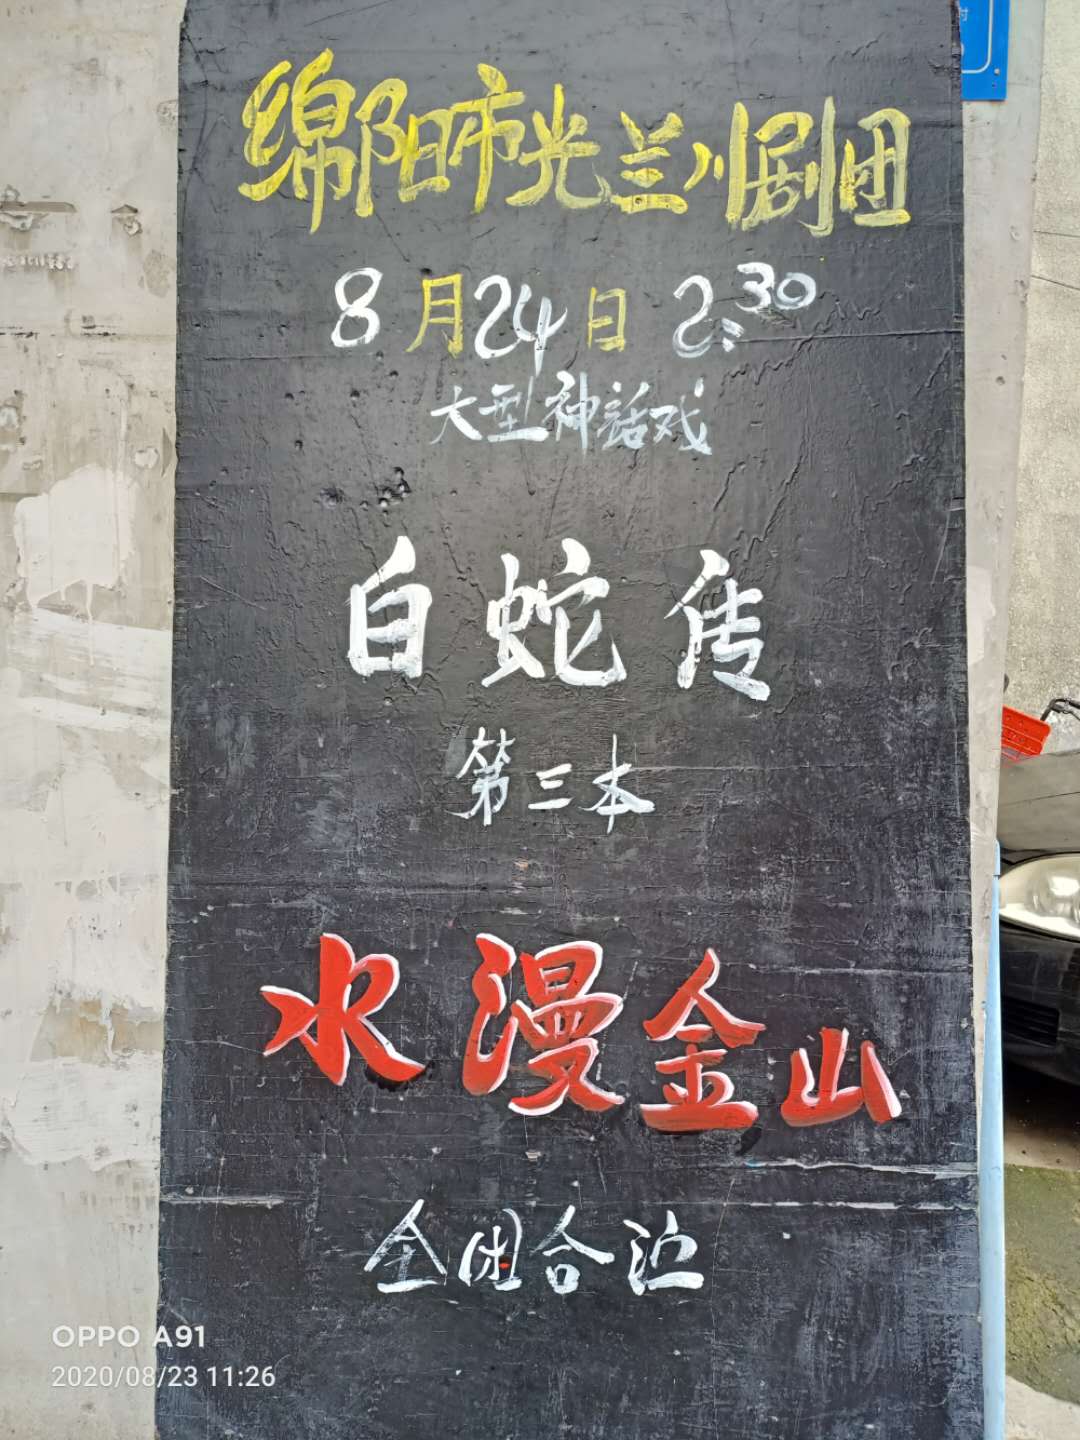 绵阳市光兰川剧团
8月24日 2:30
大型神话戏
白蛇传
第三本
水漫金山
全团合演
OPPO A91
2020/08/23 11:26